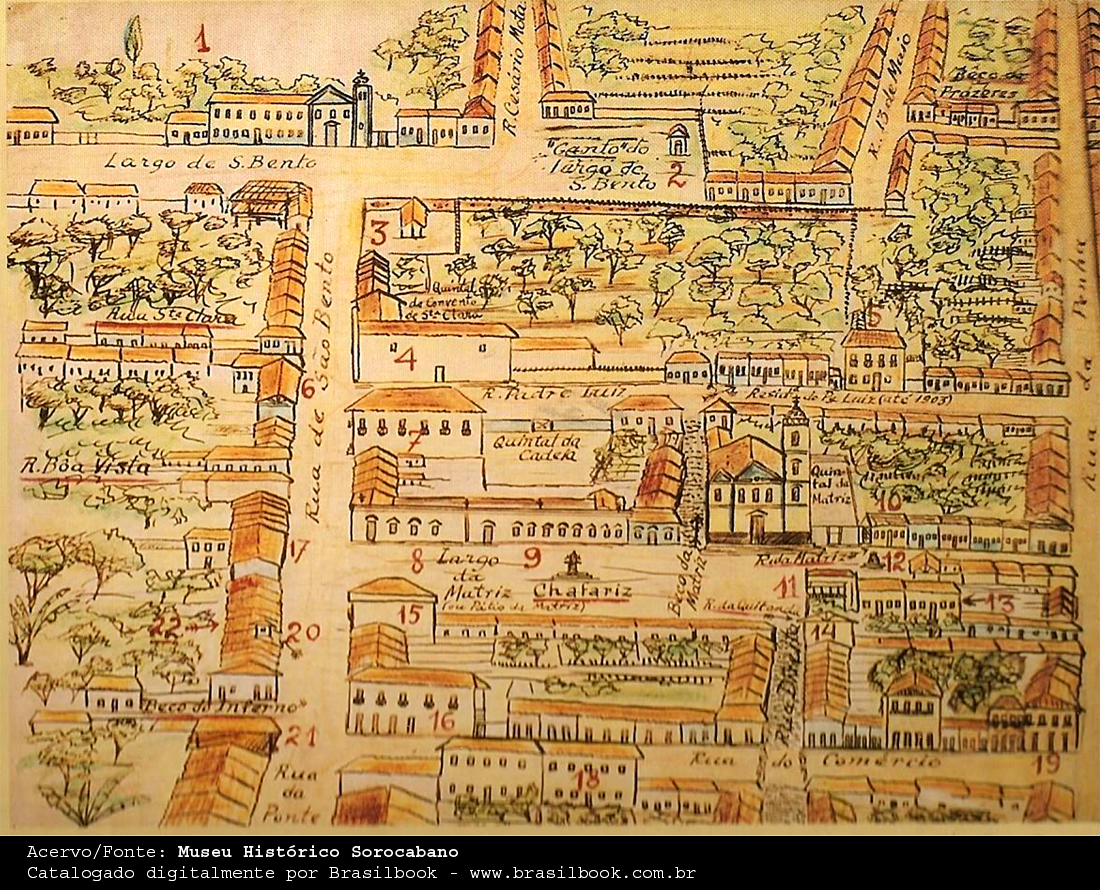 1
R. Cesário Mota
R. 13 de Maio
Beco do
Prazeres
Largo de S. Bento
"Canto" do
largo de
S. Bento
2
3
Quintal
do Convento
de Sta Clara
Rua Sta Clara
Rua de São Bento
Rua da Penha
4
5
6
R. Padre Luiz
Resid. de Pe Luiz (até 1903)
7
Quintal da
Cadeia
Quin-
tal da
Matriz
R. Bôa Vista
10
17
8
Largo
da
Matriz
(ou Pátio da Matriz)
9
Chafariz
Beco da
Matriz
R. da Matriz
12
11
13
R. da Quitanda
15
14
22
20
Rua Direita
Beco do Inferno
16
21
Rua
da
Ponte
18
Rua do Comércio
19
Acervo/Fonte: Museu Histórico Sorocabano
Catalogado digitalmente por Brasilbook - www.brasilbook.com.br